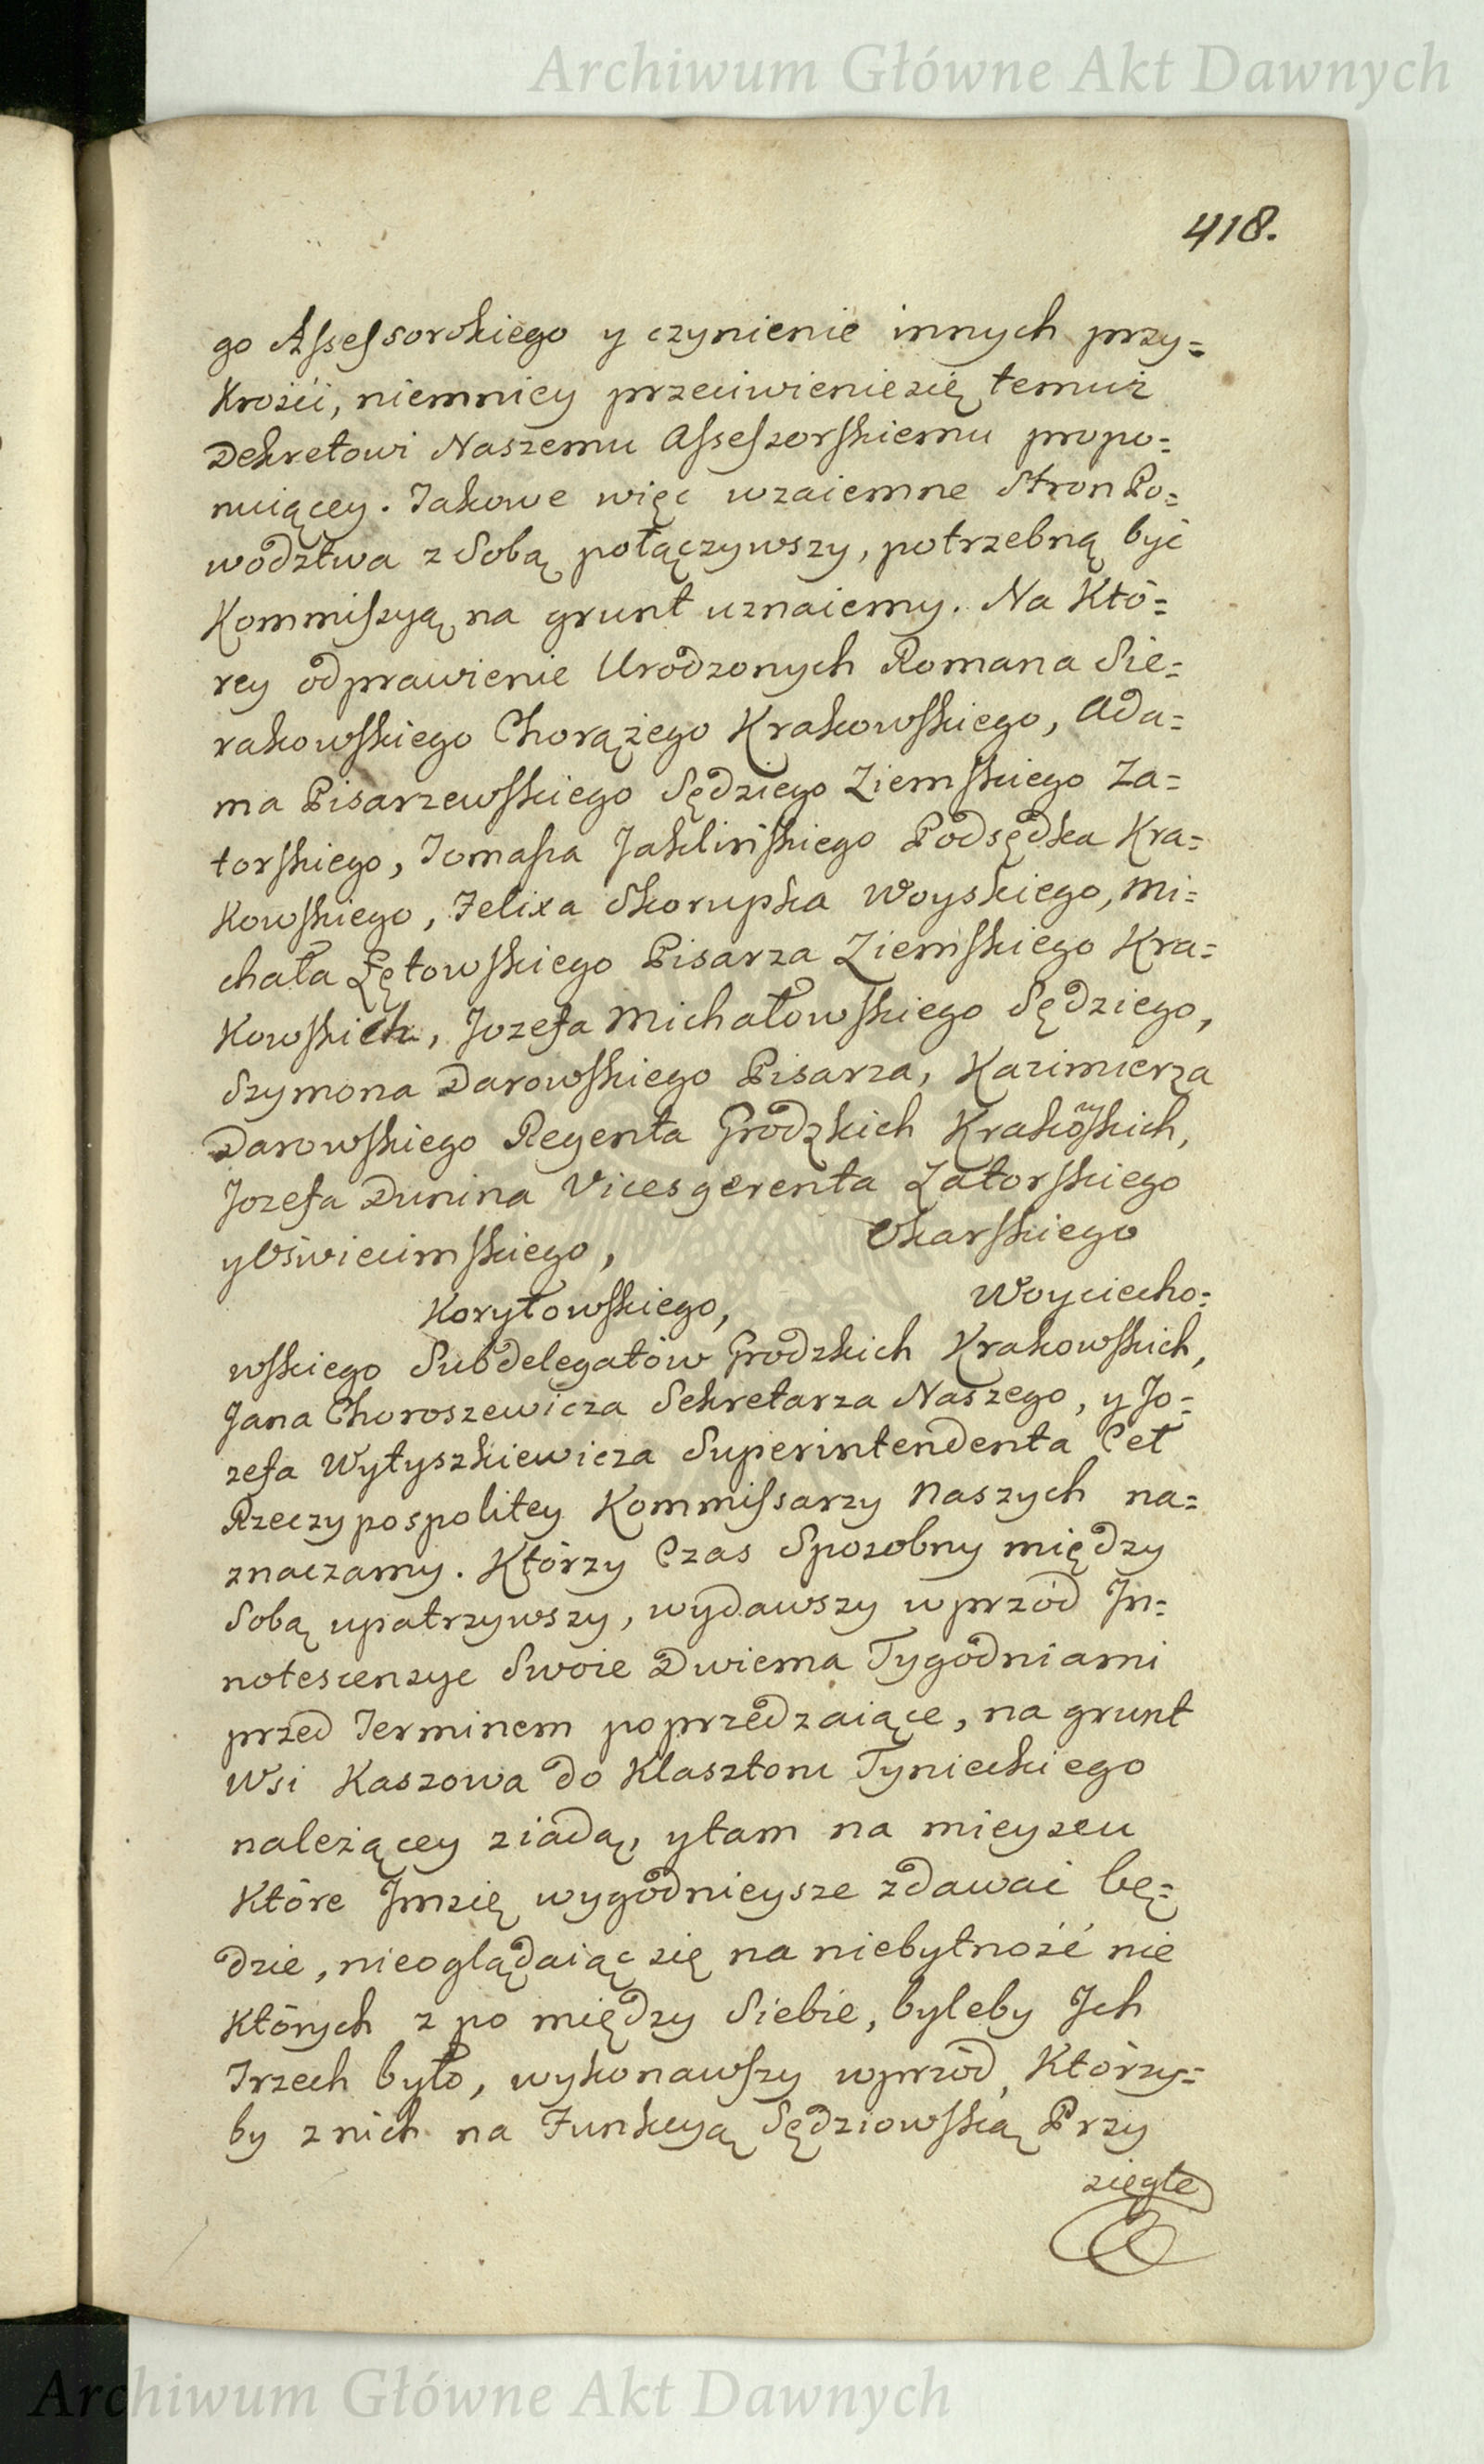 Archiwum Główne Akt Dawnych
418.
go Assessorskiego y czynienie innych przy=
krości, niemniey przeciwieniesię temuż
Dekretowi Naszemu Assessorskiemu propo=
nuiącey. Jakowe więc wzaiemne Stron Po=
wodztwa z Sobą połączywszy, potrzebną być
Kommissyą na grunt uznaiemy. Na Któ=
rey odprawienie Urodzonych Romana Sie=
rakowskiego Chorążego Krakowskiego, Ada=
ma Pisarzewskiego Sędziego Ziemskiego Za=
torskiego, Tomasza Jaklińskiego Podsędka Kra=
kowskiego, Felixa Skorupka Woyskiego, Mi=
chała Łętowskiego Pisarza Ziemskiego Kra=
kowskich, Jozefa Michałowskiego Sędziego,
Szymona Darowskiego Pisarza, Kazimierza
Darowskiego Regenta Grodzkich Krakowskich,
Jozefa Dunina Vicesgerenta Zatorskiego
y Oświecimskiego, Ekarskiego
Korytowskiego, Woyciecho=
wskiego Subdelegatów Grodzkich Krakowskich,
Jana Choroszewicza Sekretarza Naszego, y Jo=
zefa Wytyszkiewicza Superintendenta Cet
Rzeczypospolitey Kommissarzy Naszych na=
znaczamy. Którzy Czas Sposobny między
Sobą upatrzywszy, wydawszy wprzód In=
notescensye Swoie Dwiema Tygodniami
przed Terminem poprzedzaiące, na grunt
Wsi Kaszowa do Klasztoru Tynieckiego
należącey ziadą, ytam na mieyscu
Które Imsię wygodnieysze zdawać bę=
dzie, nieoglądaiąc się na niebytność nie
których z po między Siebie, byleby Ich
Trzech było, wykonawszy wprzód, Którzy=
by z nich na Funkcyą Sędziowską Przy
sięgłe
Archiwum Główne Akt Dawnych